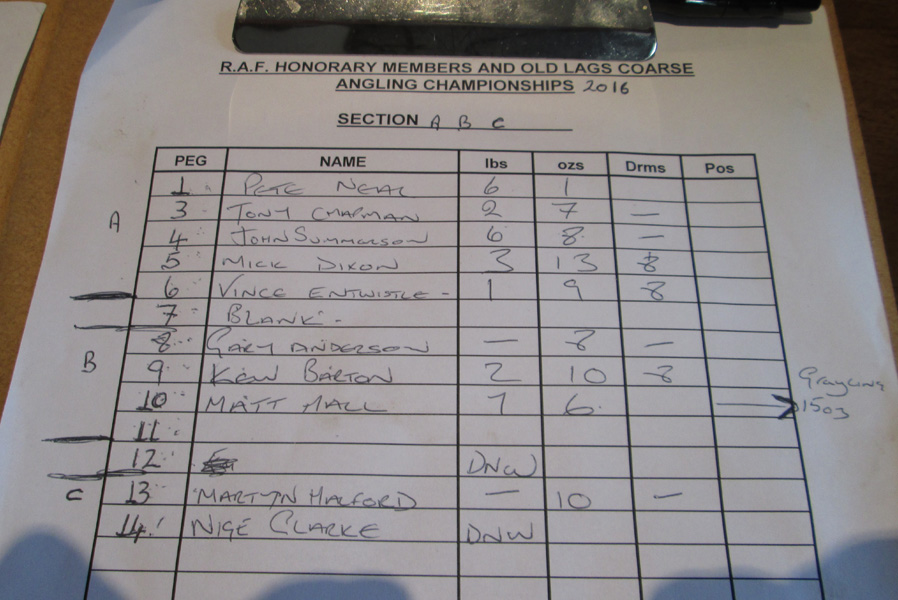 R.A.F. HONORARY MEMBERS AND OLD LAGS COARSE
ANGLING CHAMPIONSHIPS 2016
SECTION A B C
PEG NAME lbs ozs Drms Pos
1 PETE NEAL 6 1
A
3 TONY CHAPMAN 2 7 —
4 JOHN SUMMERSON 6 8 —
5 MICK DIXON 3 13 8
6 VINCE ENTWISTLE - 1 9 8
7 BLANK -
8 GARY ANDERSON — 8 —
B
9 KEN BARTON 2 10 8
Grayling
10 MATT HALL 6 1503
11
12 DNW
C 13 MARTYN HALFORD — 10 —
14 NIGE CLARKE DNW